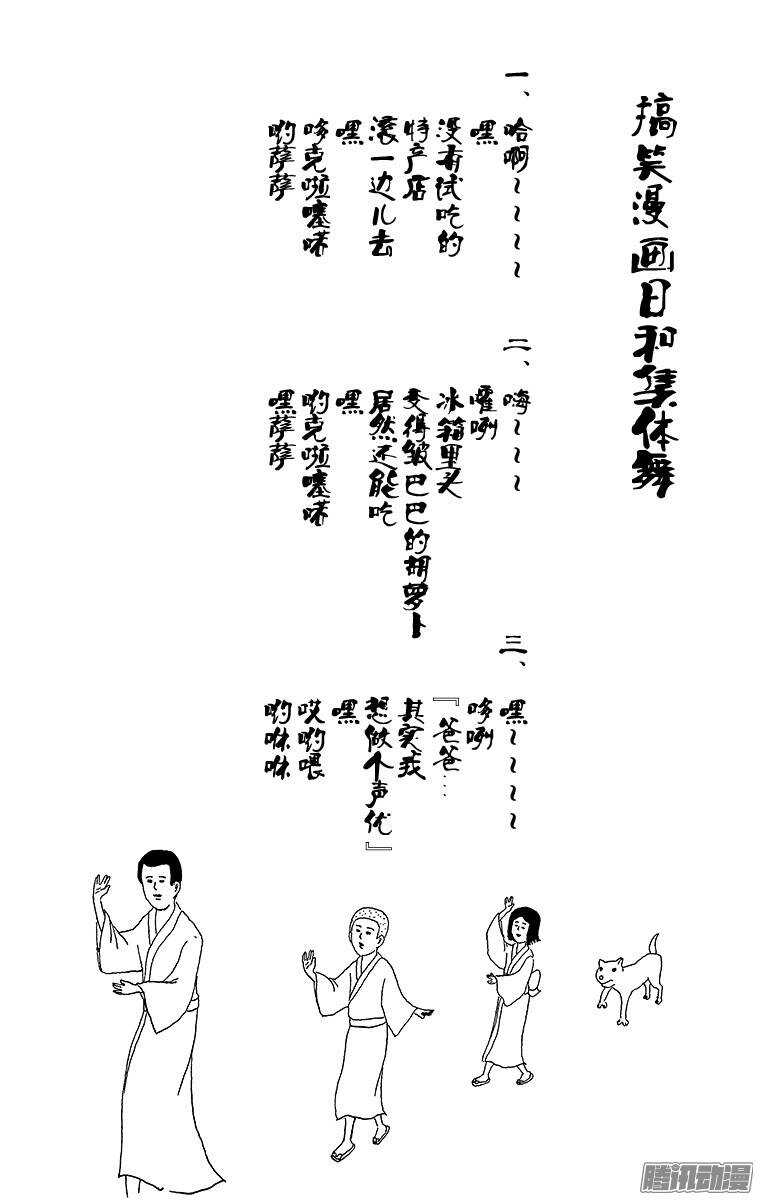 搞笑漫画日和集体舞
一、
哈啊～～～～
嘿
没有试吃的
特产店
滚一边儿去
嘿
哆克啦噻喏
哟萨萨
二、
嗨～～～～
嚯咧
冰箱里头
变得皱巴巴的胡萝卜
居然还能吃
嘿
哟克啦噻喏
嘿萨萨
三、
嘿～～～～
哆咧
『爸爸…
其实我
想做个声优』
嘿
哎哟喂
哟咻咻
腾讯动漫